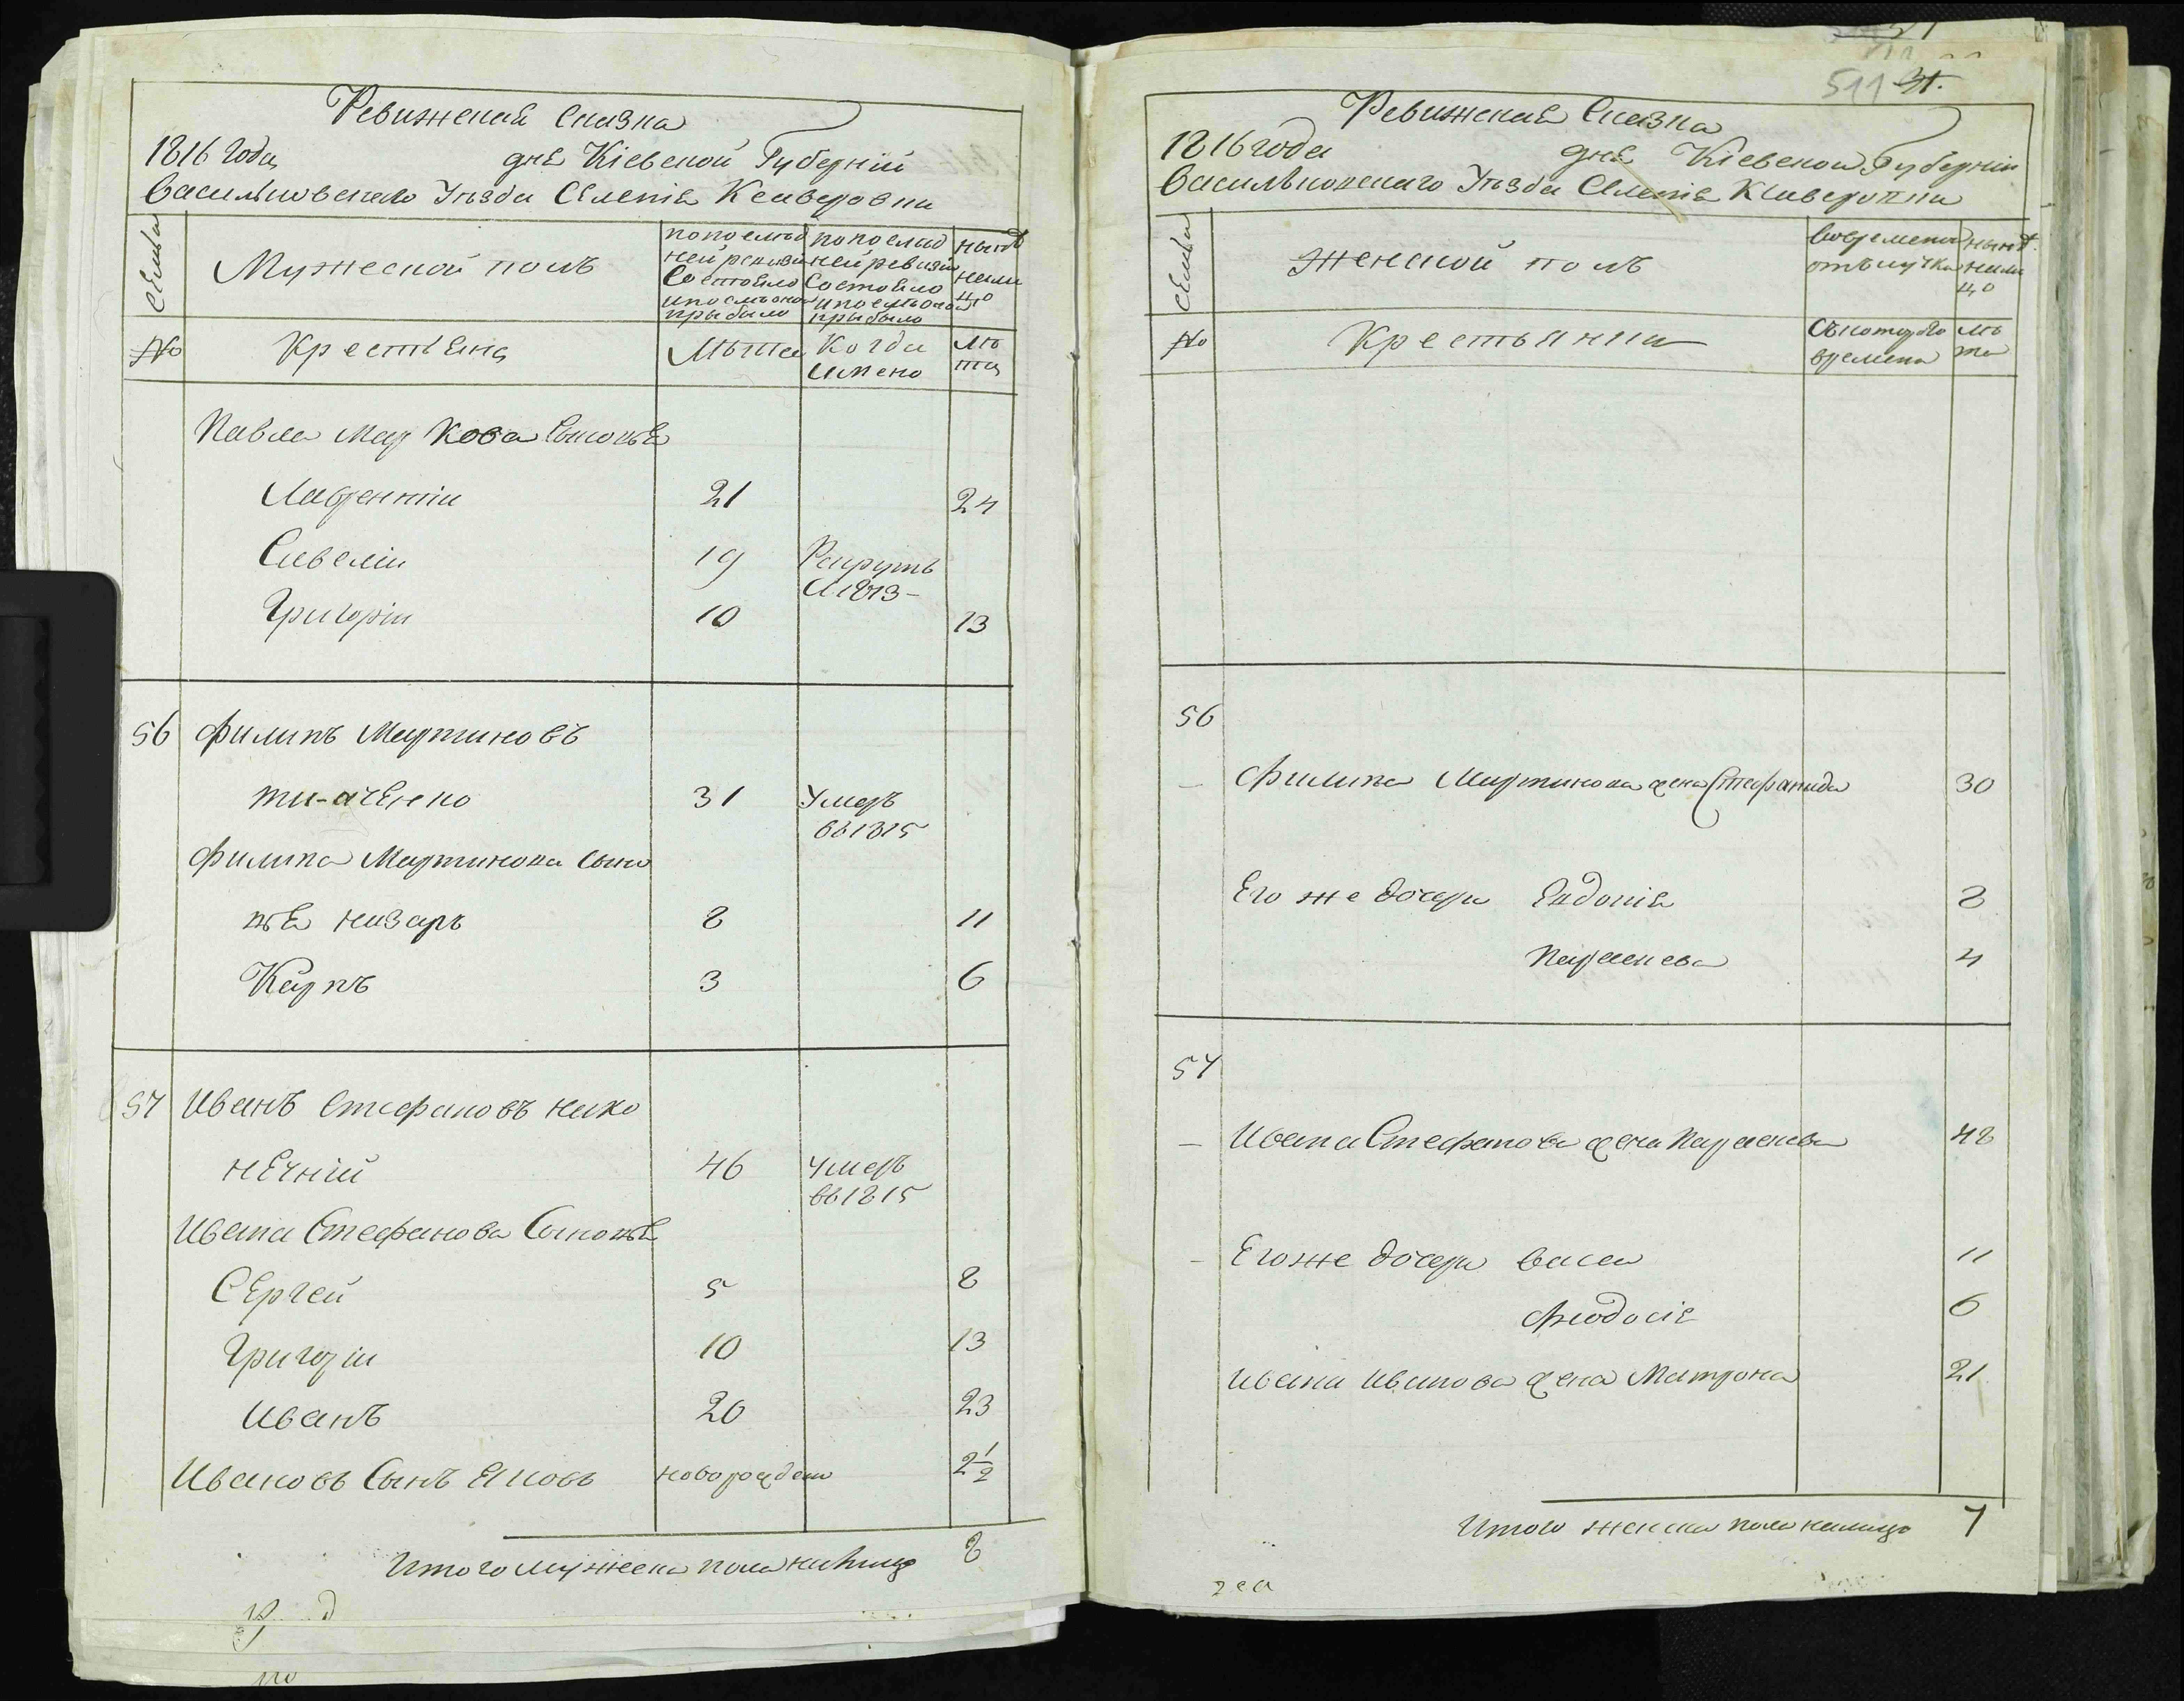 Ревижскаѣ Сказка
1816 года днѣ Кіевской Губерніи
Васильковскаго Уѣзда Селеніѣ Ксаверовки
Семьи
Мужеской полъ
попослѣд
ней ревизіи
Состоѣло
ипослѣ оной
прыбыло
попослѣд
ней ревизіи
Состоѣло
ипослѣ оной
прыбыло
нынѣ
нали
цо
№
Крестьѣнѣ
Лѣта
Когда
имено
лѣ
та
Павла Маркова Сыновьѣ
Лаврентіи 21 24
Савеліи 19 Рекрутъ
С 1813 –
Григоріи 10 13
56 Филипъ Мартиновъ
31 Умеръ
въ 1815
Филипа Мартинова Сыно
вьѣ Назаръ 8 11
Карпъ 3 6
57 Иванъ Стефановъ нако
нечній 46 Умеръ
въ 1815
Ивана Стефанова Сыновьѣ
Сергей 5 8
Григоріи 10 13
Иванъ 20 23
Ивановъ Сынъ Яковъ новорожден 2 1/2
Итого мужеска пола налицо 8
511 31.
Ревижскаѣ Сказка
1816 года днѣ Кіевской Губерніи
Васильковскаго Уѣзда Селеніѣ Ксаверовки
Семьи
Женской полъ
Вовремени
отълучки
нынѣ
нали
цо
№
Крестьянки
Съкоторого
времени
лѣ
та
56
– Филипа Мартинова жена Стефанида 30
Его же дочери Евдокіѣ 8
Параскева 4
57
– Ивана Стефанова жена Параскева 48
– Его же дочери Васса 11
Феодосіѣ 6
Ивана Иванова жена Матрона 21
Итого женска пола налицо 7